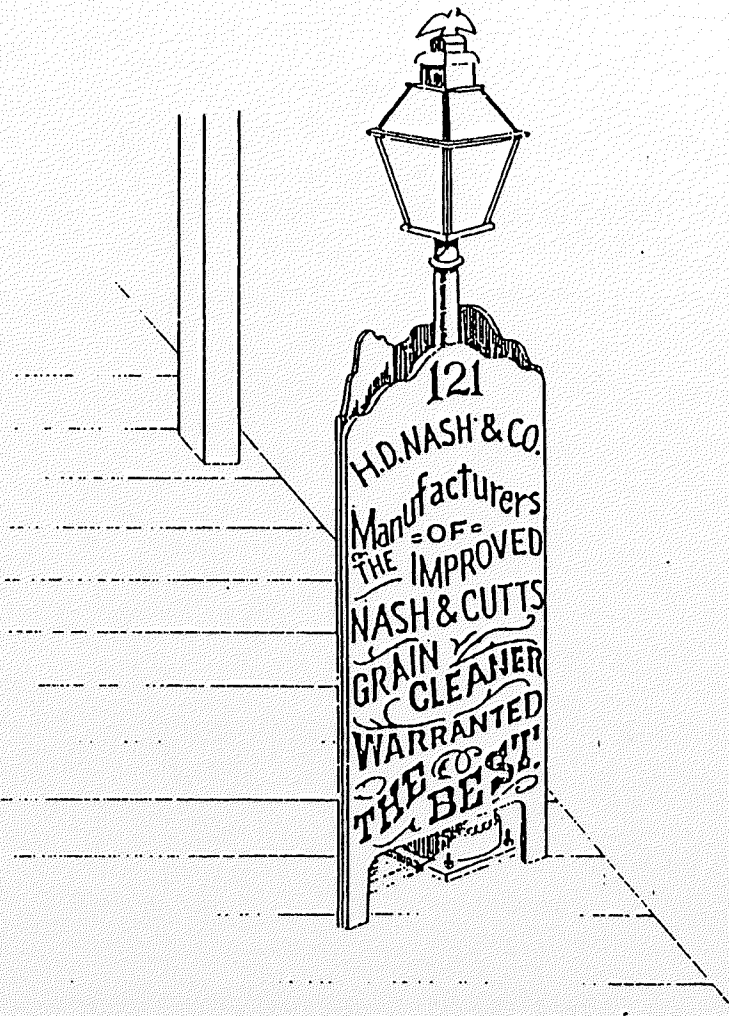 121
H.D. NASH & CO.
Manufacturers
=OF=
THE IMPROVED
NASH & CUTTS
GRAIN
CLEANER
WARRANTED
THE
BEST.